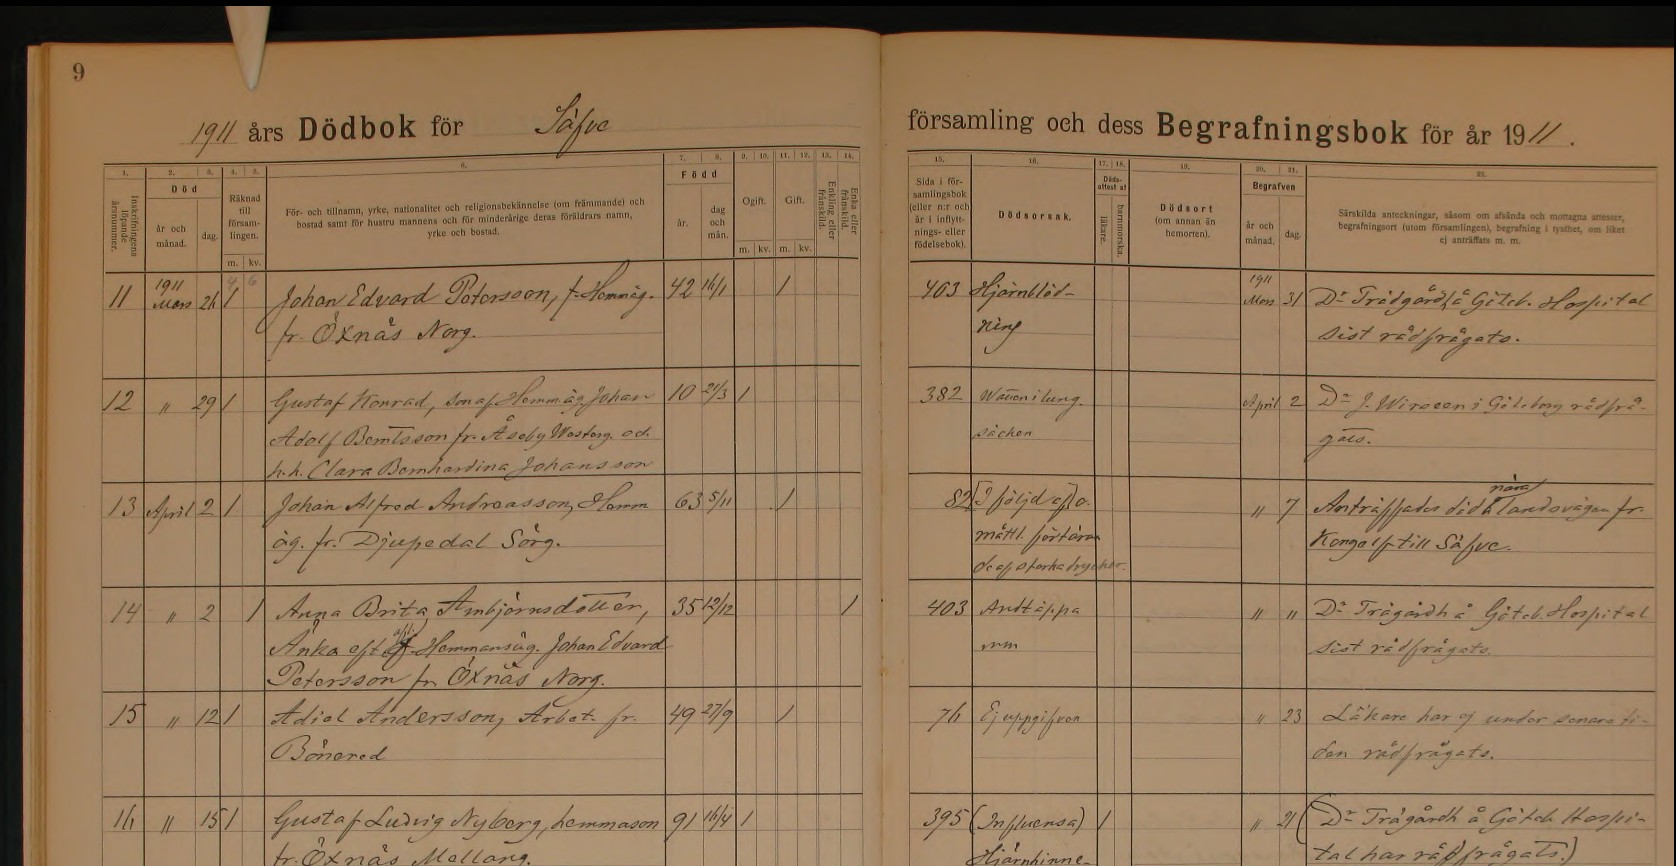 9
1911 års Dödbok för Säfve
församling och dess Begrafningsbok för år 1911.
1. 2. 3. 4. 5. 6. 7. 8. 9. 10. 11. 12. 13. 14.
Inskrifningens löpande årsnummer.
Död
år och månad. dag.
Räknad till församlingen.
m. kv.
För- och tillnamn, yrke, nationalitet och religionsbekännelse (om främmande) och
bostad samt för hustru mannens och för minderårige deras föräldrars namn,
yrke och bostad.
Född
år. dag och mån.
Ogift. Gift.
m. kv. m. kv.
Enkling eller frånskild.
Enka eller frånskild.
15. 16. 17. 18. 19. 20. 21. 22.
Sida i församlingsbok
(eller n:r och
år i inflyttnings- eller
födelsebok).
Dödsorsak.
Dödsattest af
läkare. barnmorska.
Dödsort
(om annan än
hemorten).
Begrafven
år och månad. dag.
Särskilda anteckningar, såsom om afsända och mottagna attester,
begrafningsort (utom församlingen), begrafning i tysthet, om liket
ej anträffats m. m.
11 1911 Mars 26 1 Johan Edvard Petersson, f. Hemmäg. 42 16/1 1
fr. Öxnäs Norg.
403 Hjärnblöd- 1911 Mars 31 Dr Trädgårdh å Göteb. Hospital
ning sist rådfrågats.
12 " 29 1 Gustaf Konrad, son af Hemmäg Johan 10 21/3 1
Adolf Berntsson fr. Åseby Westerg. och
h.h. Clara Bernhardina Johansson
382 Watten i lung- April 2 Dr J. Wirseen i Göteborg rådfrå-
säcken gats.
13 April 2 1 Johan Alfred Andreasson, Hemm 63 5/11 1
äg. fr. Djupedal Sörg.
82 [I följd af] o- " 7 Anträffades död nära landsvägen fr.
måttl. förtäran Kongelf till Säfve.
de af starka drycker.
14 " 2 1 Anna Brita Ambjörnsdotter, 35 12/12 1
Änka eft. afl. Hemmansäg. Johan Edvard
Petersson fr. Öxnäs Norg.
403 Andtäppa " " Dr Trägårdh å Göteb. Hospital
mm sist rådfrågats.
15 " 12 1 Adiel Andersson, Arbet. fr. 49 27/9 1
Bönered
76 Ej uppgifven " 23 Läkare har ej under senare ti-
den rådfrågats.
16 " 15 1 Gustaf Ludvig Nyberg, hemmason 91 16/4 1
fr. Öxnäs Mellang.
395 (Influensa) 1 " 21 (Dr Trägårdh å Göteb Hospi-
Hjärnhinne- tal har rådfrågats.)